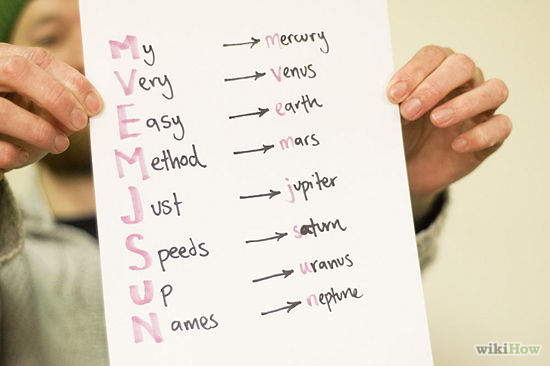 My → mercury
Very → venus
Easy → earth
Method → mars
Just → jupiter
Speeds → saturn
Up → uranus
Names → neptune
wikiHow